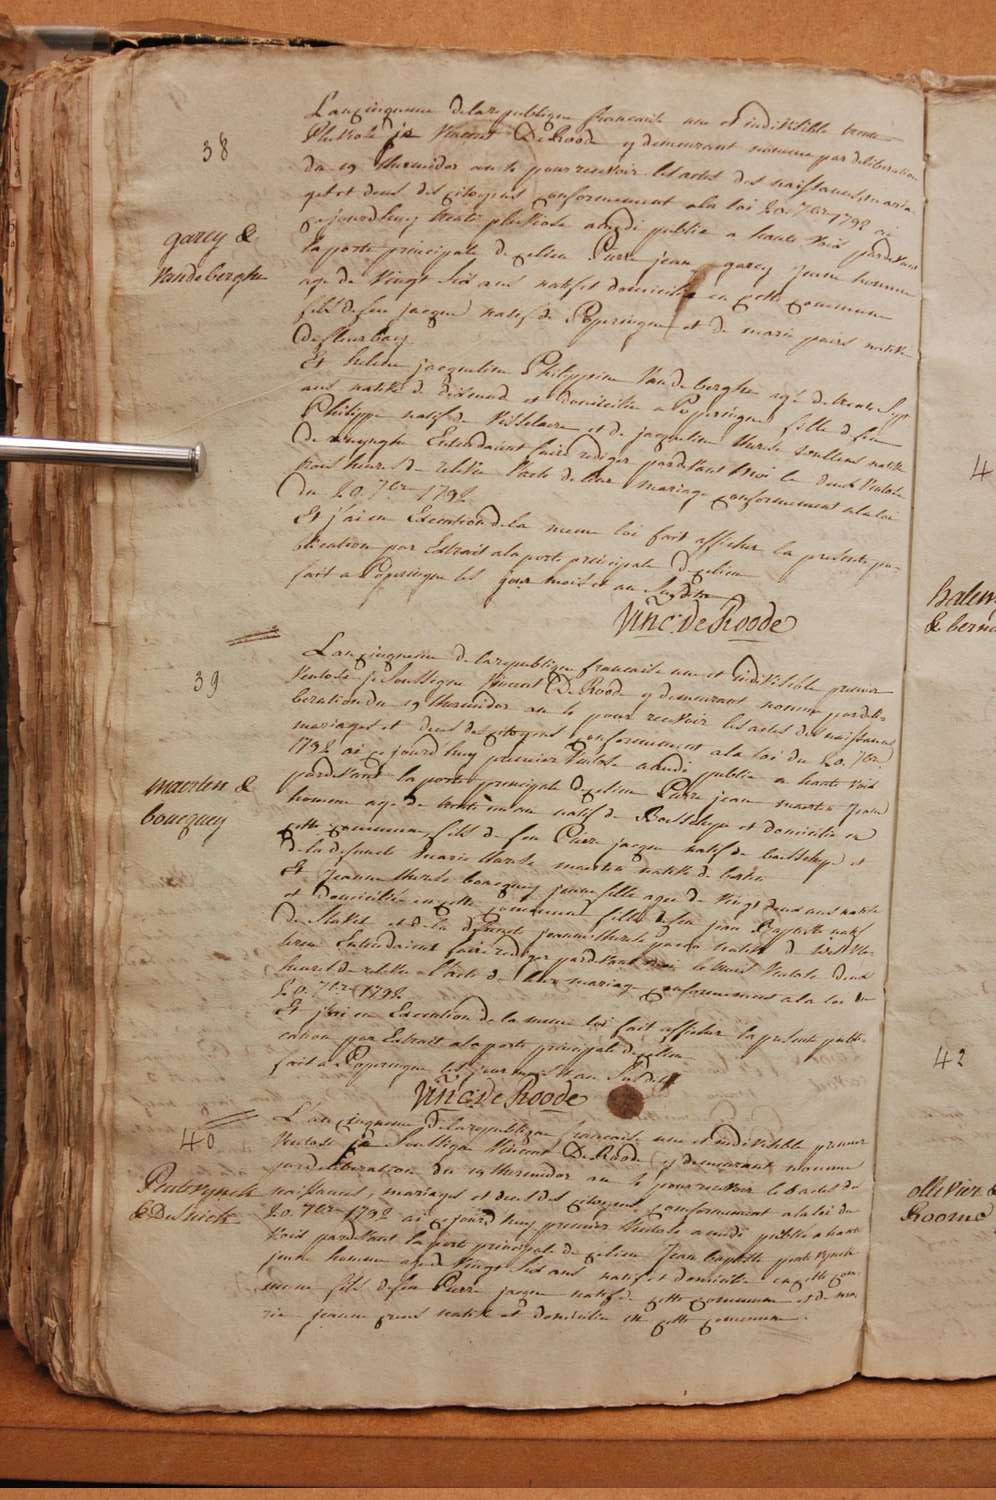 38
L'an cinquieme de la republique francaise une et indivisible trente
Pluviose je Vincent De Roode y demeurant nomme par deliberation
du 19 thermidor an 4 pour recevoir les actes des naissances, maria
ges et deces des citoyens conformement a la loi 20 7bre 1792 ai
cejourdhuy trente pluviose a midi publie a haute voix pardevant
la porte principale de ce lieu Pierre jean garey jeune homme
age de vingt six ans natif et domicilie en cette commune
fils de feu jacques natif de Poperingue et de marie natifve
de fleurbay.
garey &
Vandeberghe
Et helene jacqueline Philippine Vandeberghe age de trente Sept
ans native de et domiciliee a Poperingue fille de feu
Philippe natif de et de jacqueline therese native
de Entendaient faire rediger pardevant moi le deux Ventose
trois heures de relevee l'acte de leur mariage conformement a la loi
du 20 7bre 1792
Et j'ai en Execution de la meme loi fait afficher la presente pu-
blication par Extrait a la porte principale de ce lieu
fait a Poperingue les jour mois et an Susdits
Vinc: De Roode
39
L'an cinquieme de la republique francaise une et indivisible premier
Ventose je Soussigne Vincent De Roode y demeurant nomme par deli-
beration du 19 thermidor an 4 pour recevoir les actes des naissances
mariages et deces des citoyens conformement a la loi du 20 7bre
1792 ai ce jourd'huy premier Ventose a midi publie a haute voix
pardevant la porte principale de ce lieu Pierre jean maerten jeune
homme age de trente un an natif de Boesschepe et domicilie en
cette commune fils de feu Pierre jacques natif de boesschepe et
de la defuncte marie therese native de
maerten &
boucquey
Et Jeanne therese boucquey jeune fille agee de Vingt deux ans native
et domiciliee en cette commune fille de feu jean Baptiste natif
de et de la defuncte jeanne therese native de
Entendaient faire rediger pardevant moi le trois Ventose deux
heures de relevee l'acte de leur mariage conformement a la loi du
20 7bre 1792
Et j'ai en Execution de la meme loi fait afficher la presente publi
cation par Extrait a la porte principale de ce lieu
fait a Poperingue les jour mois et an Susdits
Vinc: De Roode
40
L'an cinquieme de la republique francaise une et indivisible premier
Ventose je Soussigne Vincent De Roode y demeurant nomme
par deliberation du 19 thermidor an 4 pour recevoir les actes de
naissances, mariages et deces des citoyens conformement a la loi du
20 7bre 1792 ai cejourd'huy premier Ventose a midi publie a haute
Voix pardevant la porte principale de ce lieu Jean baptiste
jeune homme age de Vingt Six ans natif et domicilie en cette com-
mune fils de feu Pierre jacques natif de cette commune et de ma
rie jeanne native et domiciliee en cette commune.
& Desnick
4
Balew
& bern
42
ollivier &
Roome